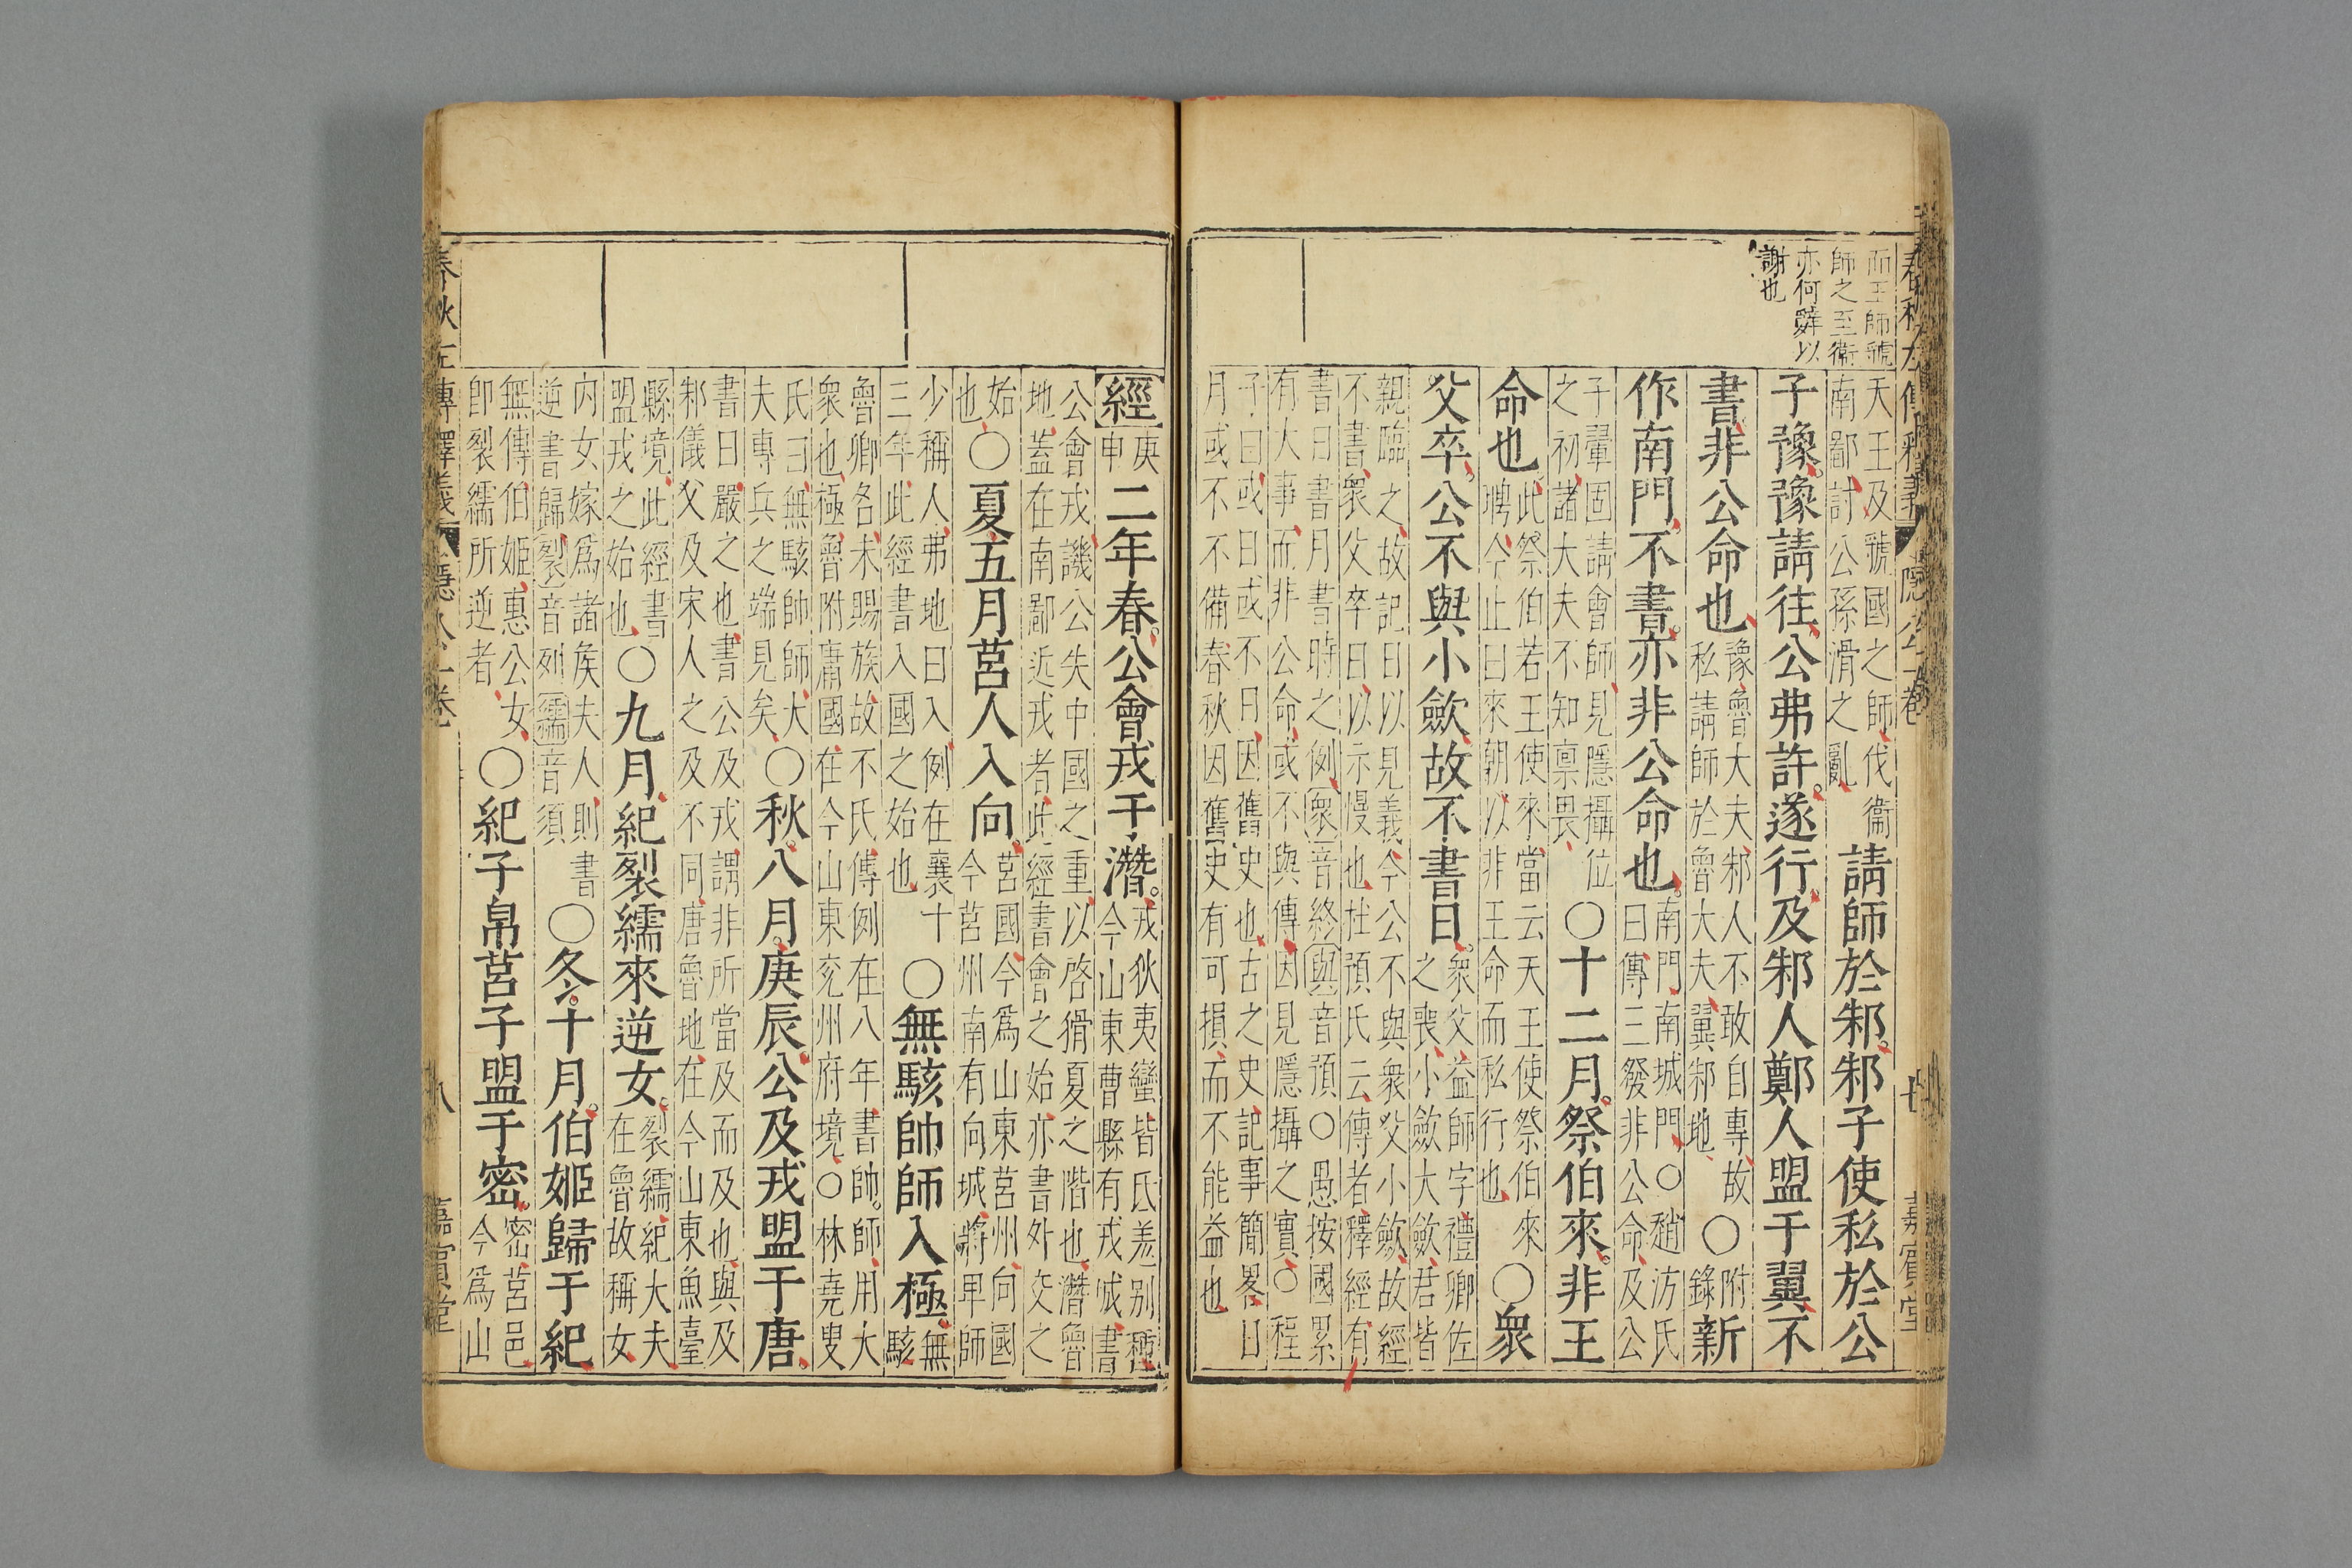 而王師虢
師之至衞
亦何辭以
謝也
天王及虢國之師伐衞
南鄙討公孫滑之亂
請師於邾邾子使私於公
子豫豫請往公弗許遂行及邾人鄭人盟于翼不
書非公命也
豫魯大夫邾人不敢自專故
私請師於魯大夫翼邾地
○
附
錄
新
作南門不書亦非公命也
南門南城門○趙汸氏
曰傳三發非公命及公
子翬固請會師見隱攝位
之初諸大夫不知禀畏
○十二月祭伯來非王
命也
此祭伯若王使來當云天王使祭伯來
聘今止曰來朝以非王命而私行也
○衆
父卒公不與小斂故不書日
衆父益師字禮卿佐
之喪小斂大斂君皆
親臨之故記日以見義今公不與衆父小斂故經
不書衆父卒日以示慢也杜預氏云傳者釋經有
書日書月書時之例衆音終與音預○愚按國累
有大事而非公命或不與傳因見隱攝之實○程
子曰或日或不日因舊史也古之史記事簡畧日
月或不不備春秋因舊史有可損而不能益也
春秋左傳釋義
隱公一卷
嘉賓堂
經
庚
申
二年春公會戎于潛
戎狄夷蠻皆氐羌别種
今山東曹縣有戎城書
公會戎譏公失中國之重以啓猾夏之階也潛魯
地蓋在南鄙近戎者此經書會之始亦書外交之
始
也
○夏五月莒人入向
莒國今爲山東莒州向國
今莒州南有向城將卑師
少稱人弗地曰入例在襄十
三年此經書入國之始也
○無駭帥師入極
無
駭
魯卿各未賜族故不氏傳例在八年書帥師用大
衆也極魯附庸國在今山東兖州府境○林堯叟
氏曰無駭帥師大
夫專兵之端見矣
○秋八月庚辰公及戎盟于唐
書曰嚴之也書公及戎謂非所當及而及也與及
邾儀父及宋人之及不同唐魯地在今山東魚臺
縣境此經書
盟戎之始也
○九月紀裂繻來逆女
裂繻紀大夫
在魯故稱女
内女嫁爲諸矦夫人則書
逆書歸裂音列繻音須
○冬十月伯姬歸于紀
無傳伯姬惠公女
即裂繻所逆者
○紀子帛莒子盟于密
密莒邑
今爲山
春秋左傳釋義
隱公一卷
八
嘉賓堂